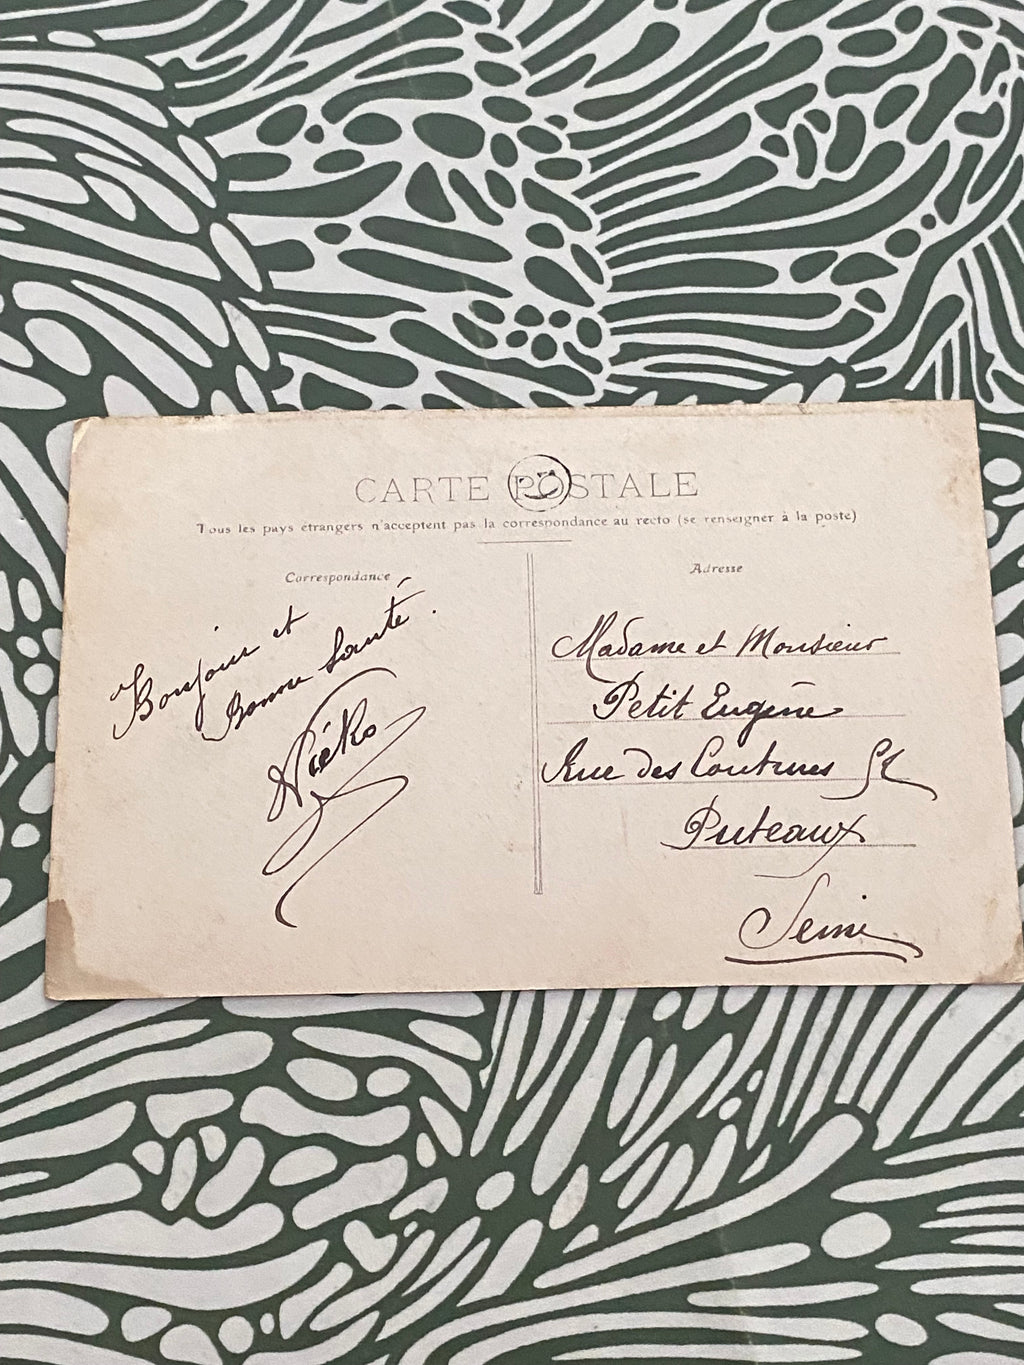 CARTE POSTALE
Tous les pays étrangers n'acceptent pas la correspondance au recto (se renseigner à la poste)
Correspondance
Bonjour et
Bonne Santé.
Adresse
Madame et Monsieur
Petit Eugène
Rue des Coutures
Puteaux
Seine